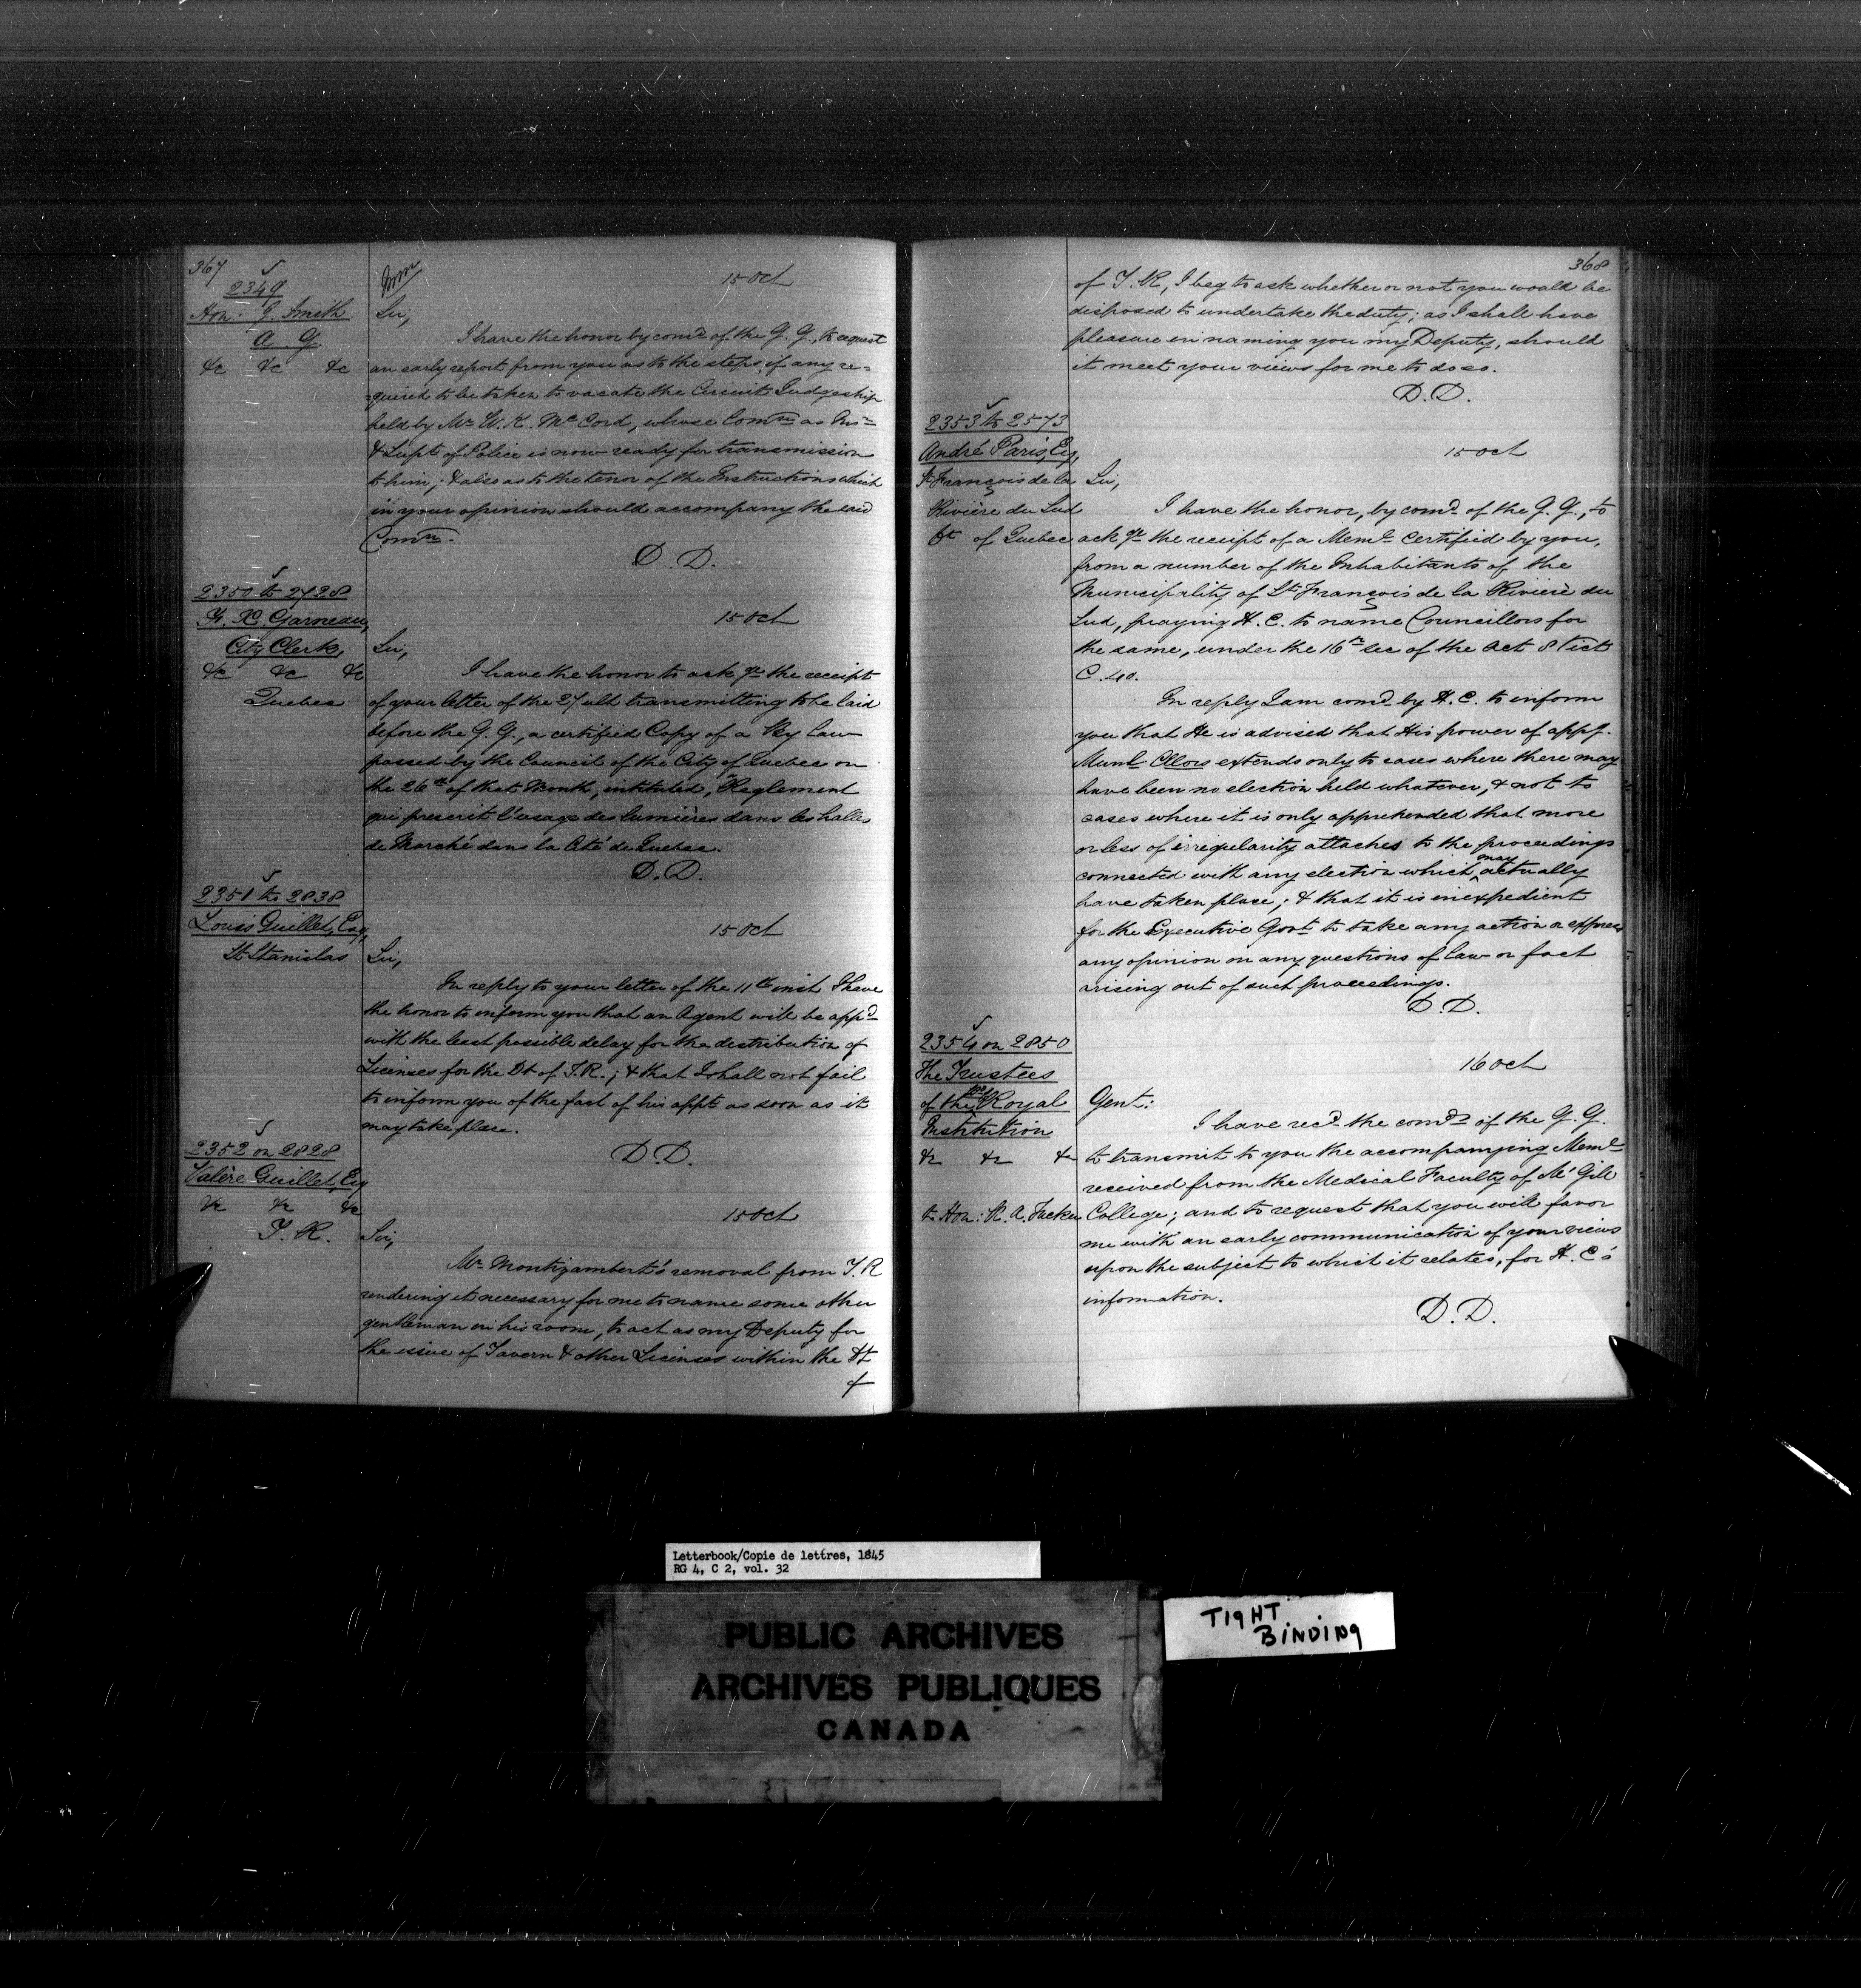 367
2349
Hon. J. Smith
A. G.
&c &c &c
15 Oct
Sir,
I have the honor by comd of the G. G., to request
an early report from you as to the steps, if any re=
quired to be taken to vacate the Circuit Judgeship
held by Mr W. K. McCord, whose Comn as Insr
& Supt of Police is now ready for transmission
to him; & also as to the tenor of the Instructions which
in your opinion should accompany the said
Comn.
D. D.
2350 to 2728
F. X. Garneau,
City Clerk,
&c &c &c
Quebec
15 Oct
Sir,
I have the honor to ack ge the receipt
of your letter of the 27 ult transmitting to be laid
before the G. G., a certified Copy of a By Law
passed by the Council of the City of Quebec on
the 26th of that Month, intituled, "Reglement
qui prescrit l'usage des lumières dans les halles
de Marché dans la Cité de Quebec.
D. D.
2351 to 2838
Louis Guillet, Esq,
St Stanislas
15 Oct
Sir,
In reply to your letter of the 11th inst I have
the honor to inform you that an Agent will be appd
with the least possible delay for the distribution of
Licenses for the Dt of T. R.; & that I shall not fail
to inform you of the fact of his appt as soon as it
may take place.
D. D.
2352 on 2828
Valère Guillet, Esq
&c &c &c
T. R.
15 Oct
Sir,
Mr Montizambert's removal from T. R
rendering it necessary for me to name some other
gentleman in his room, to act as my Deputy for
the issue of Tavern & other Licenses within the Dt
of
368
of T. R, I beg to ask whether or not you would be
disposed to undertake the duty; as I shall have
pleasure in naming you my Deputy, should
it meet your views for me to do so.
D. D.
2353 to 2573
André Paris, Esq,
St François de la
Rivière du Sud
Dt of Quebec
15 Oct
Sir,
I have the honor, by comd of the G. G., to
ack ge the receipt of a Meml certified by you,
from a number of the Inhabitants of the
Municipality of St François de la Rivière du
Sud, praying H. E. to name Councillors for
the same, under the 16th sec of the Act 8 Vict
C. 40.
In reply I am comd by H. E. to inform
you that He is advised that His power of appg.
Munl Cllors extends only to cases where there may
have been no election held whatever, & not to
cases where it is only apprehended that more
or less of irregularity attaches to the proceedings
connected with any election which may actually
have taken place; & that it is inexpedient
for the Executive Govt to take any action or express
any opinion on any questions of law or fact
arising out of such proceedings.
D. D.
2354 on 2850
The Trustees
of the Royal
Institution
&c &c &c
to Hon: R. A. Tucker
16 Oct
Gent:
I have recd the comds of the G. G.
to transmit to you the accompanying Meml
received from the Medical Faculty of McGill
College; and to request that you will favor
me with an early communication of your views
upon the subject to which it relates, for H. E's
information.
D. D.
Letterbook/Copie de lettres, 1845
RG 4, C 2, vol. 32
PUBLIC ARCHIVES
ARCHIVES PUBLIQUES
CANADA
TIGHT
BINDING